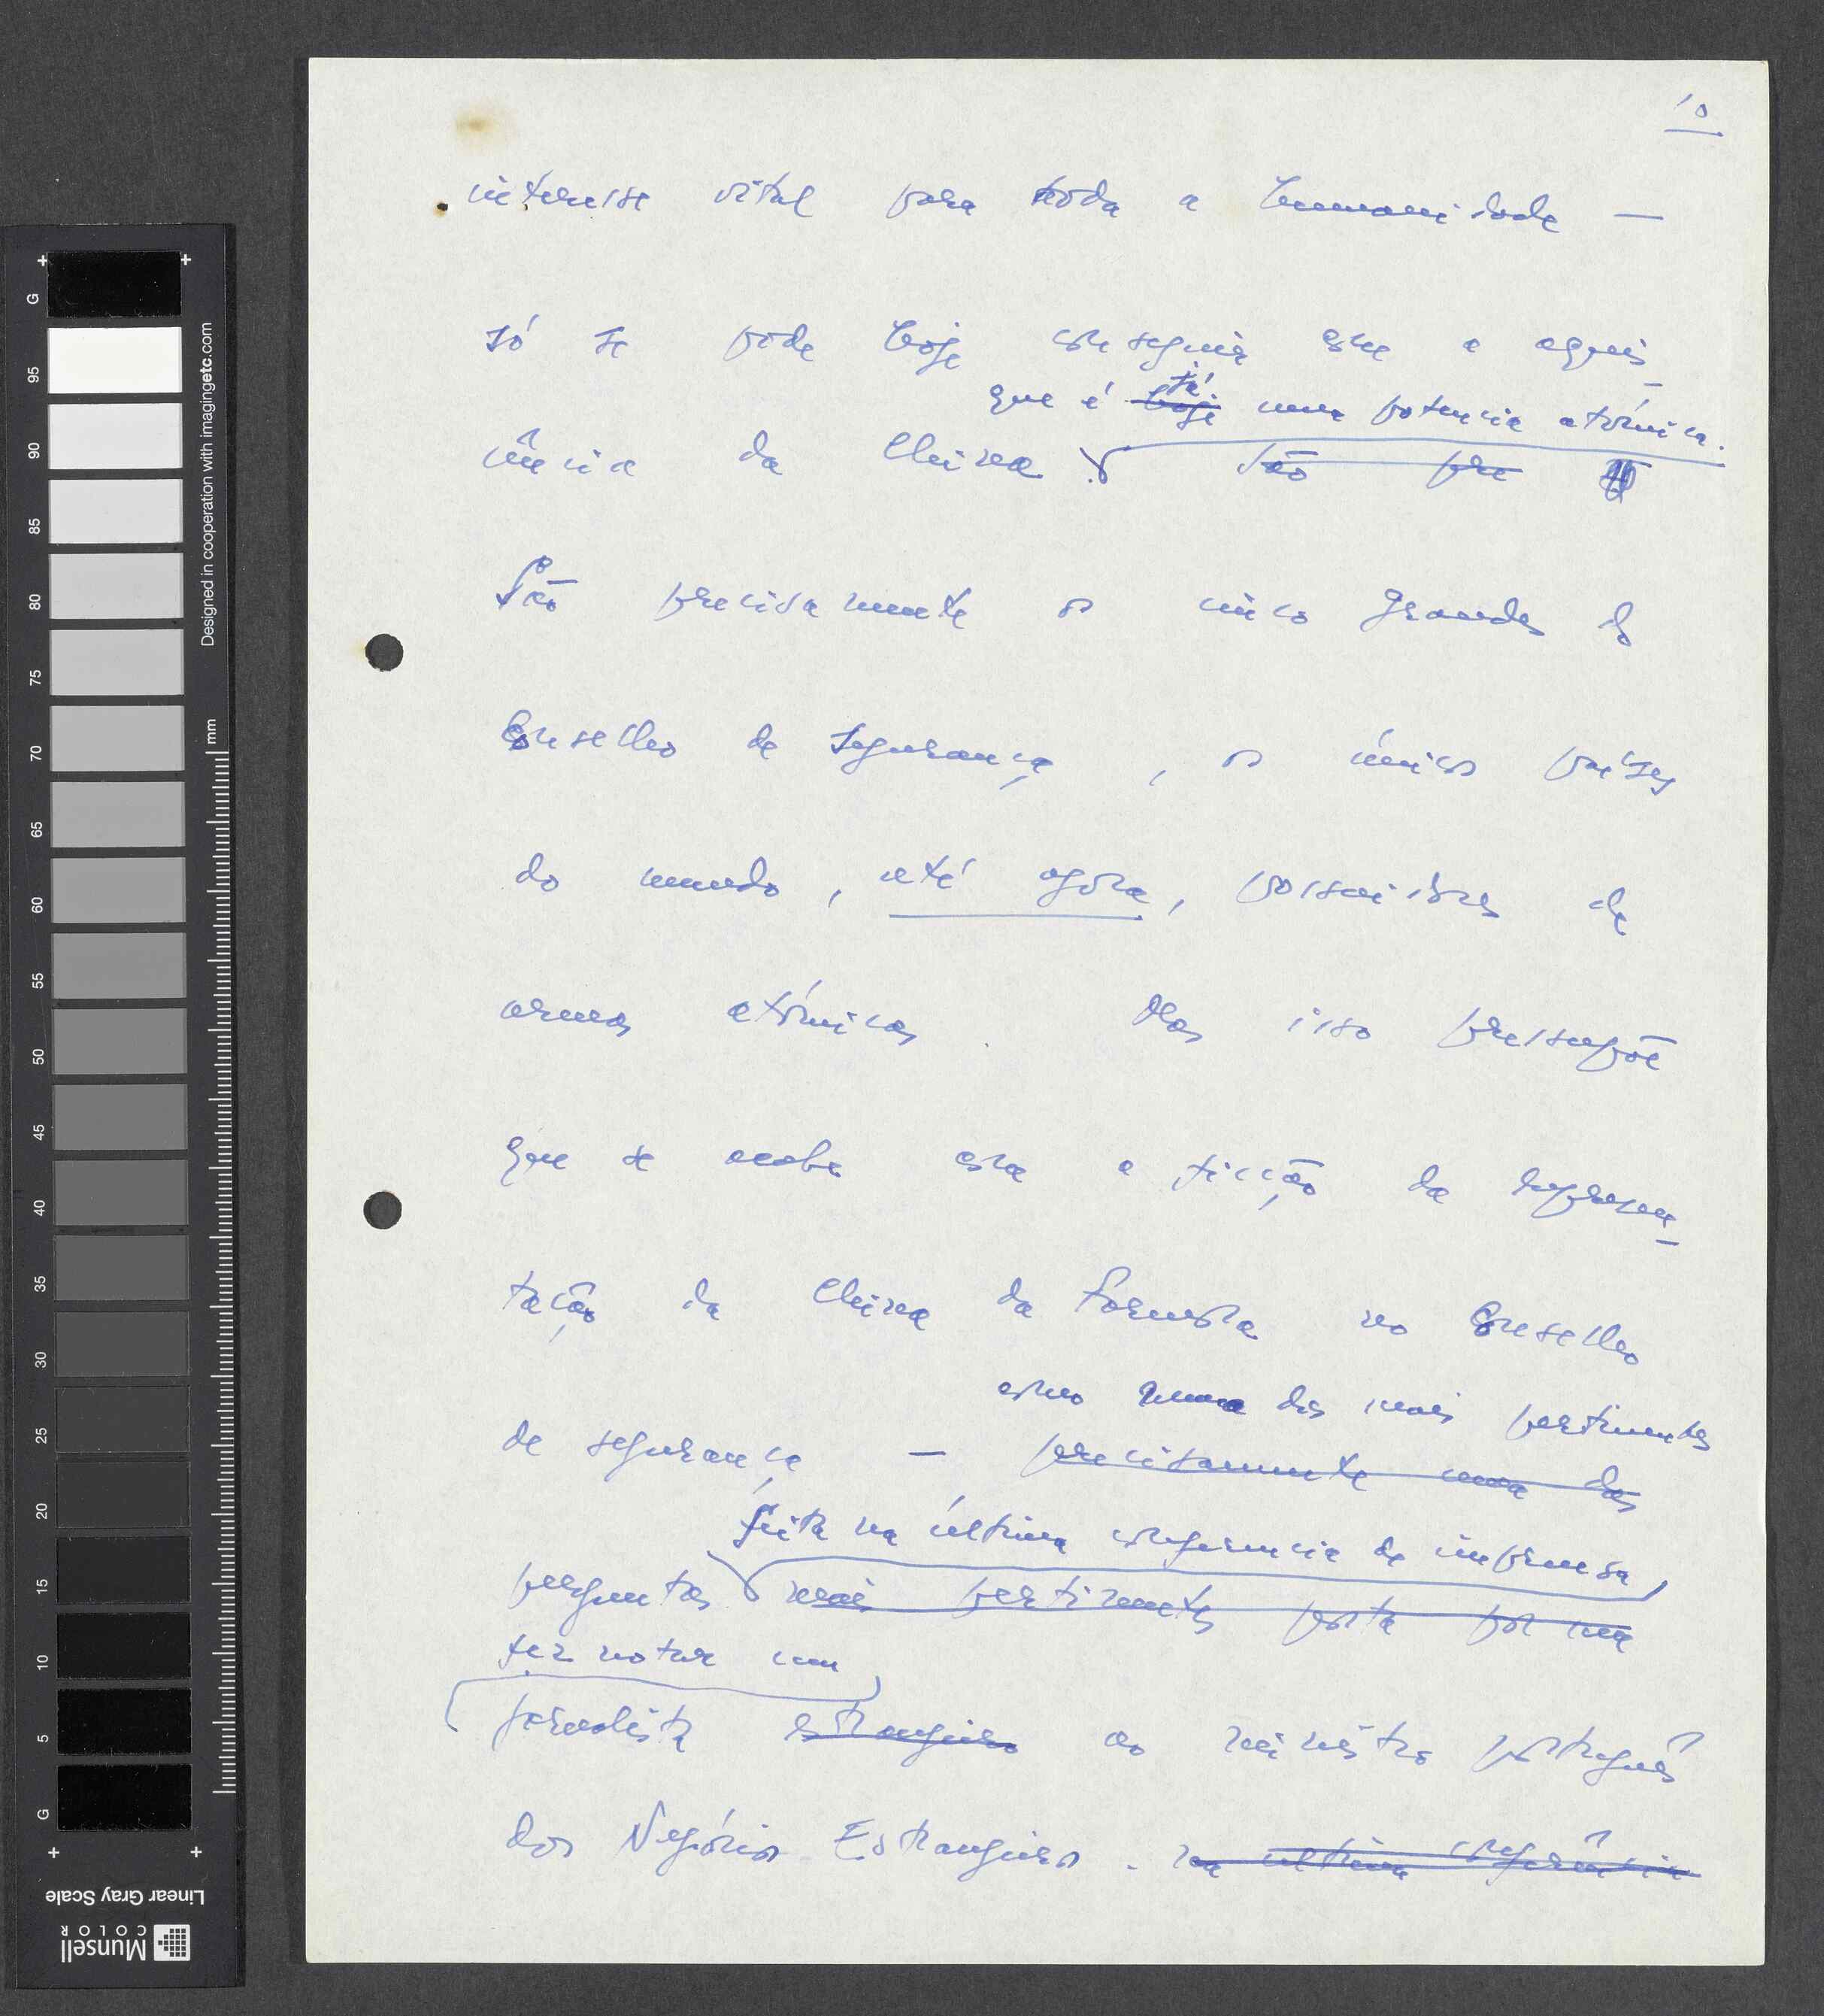 10
interesse vital para toda a humanidade —
só se pode hoje conseguir com a aquies-
que é hoje já uma potencia atómica.
cência da China São pre
São precisamente os cinco grandes do
Conselho de Segurança, os únicos países
do mundo, até agora, possuidores de
armas atómicas. Mas isso pressupõe
que se acabe com a ficção da represen-
tação da China da Formosa no Conselho
como uma das mais pertinentes
de segurança — precisamente uma das
feita na última conferencia de imprensa
perguntas mais pertinentes posta por um
fez notar um
jornalista estrangeiro ao ministro português
dos Negócios Estrangeiros. na ultima conferência
G 95 90 85 80 75 70 65 60 55 50 45 40 35 30 25 20 15 10 5 G
mm
Designed in cooperation with imagingetc.com
Linear Gray Scale
Munsell
COLOR